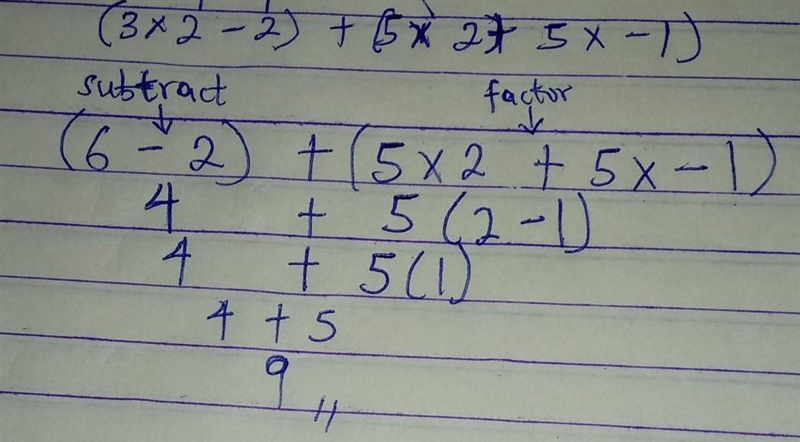 (3 × 2 - 2) + (5 × 2 + 5 × -1)
subtract factor
(6 - 2) + (5 × 2 + 5 × -1)
4 + 5 (2 - 1)
4 + 5 (1)
4 + 5
9 ,,